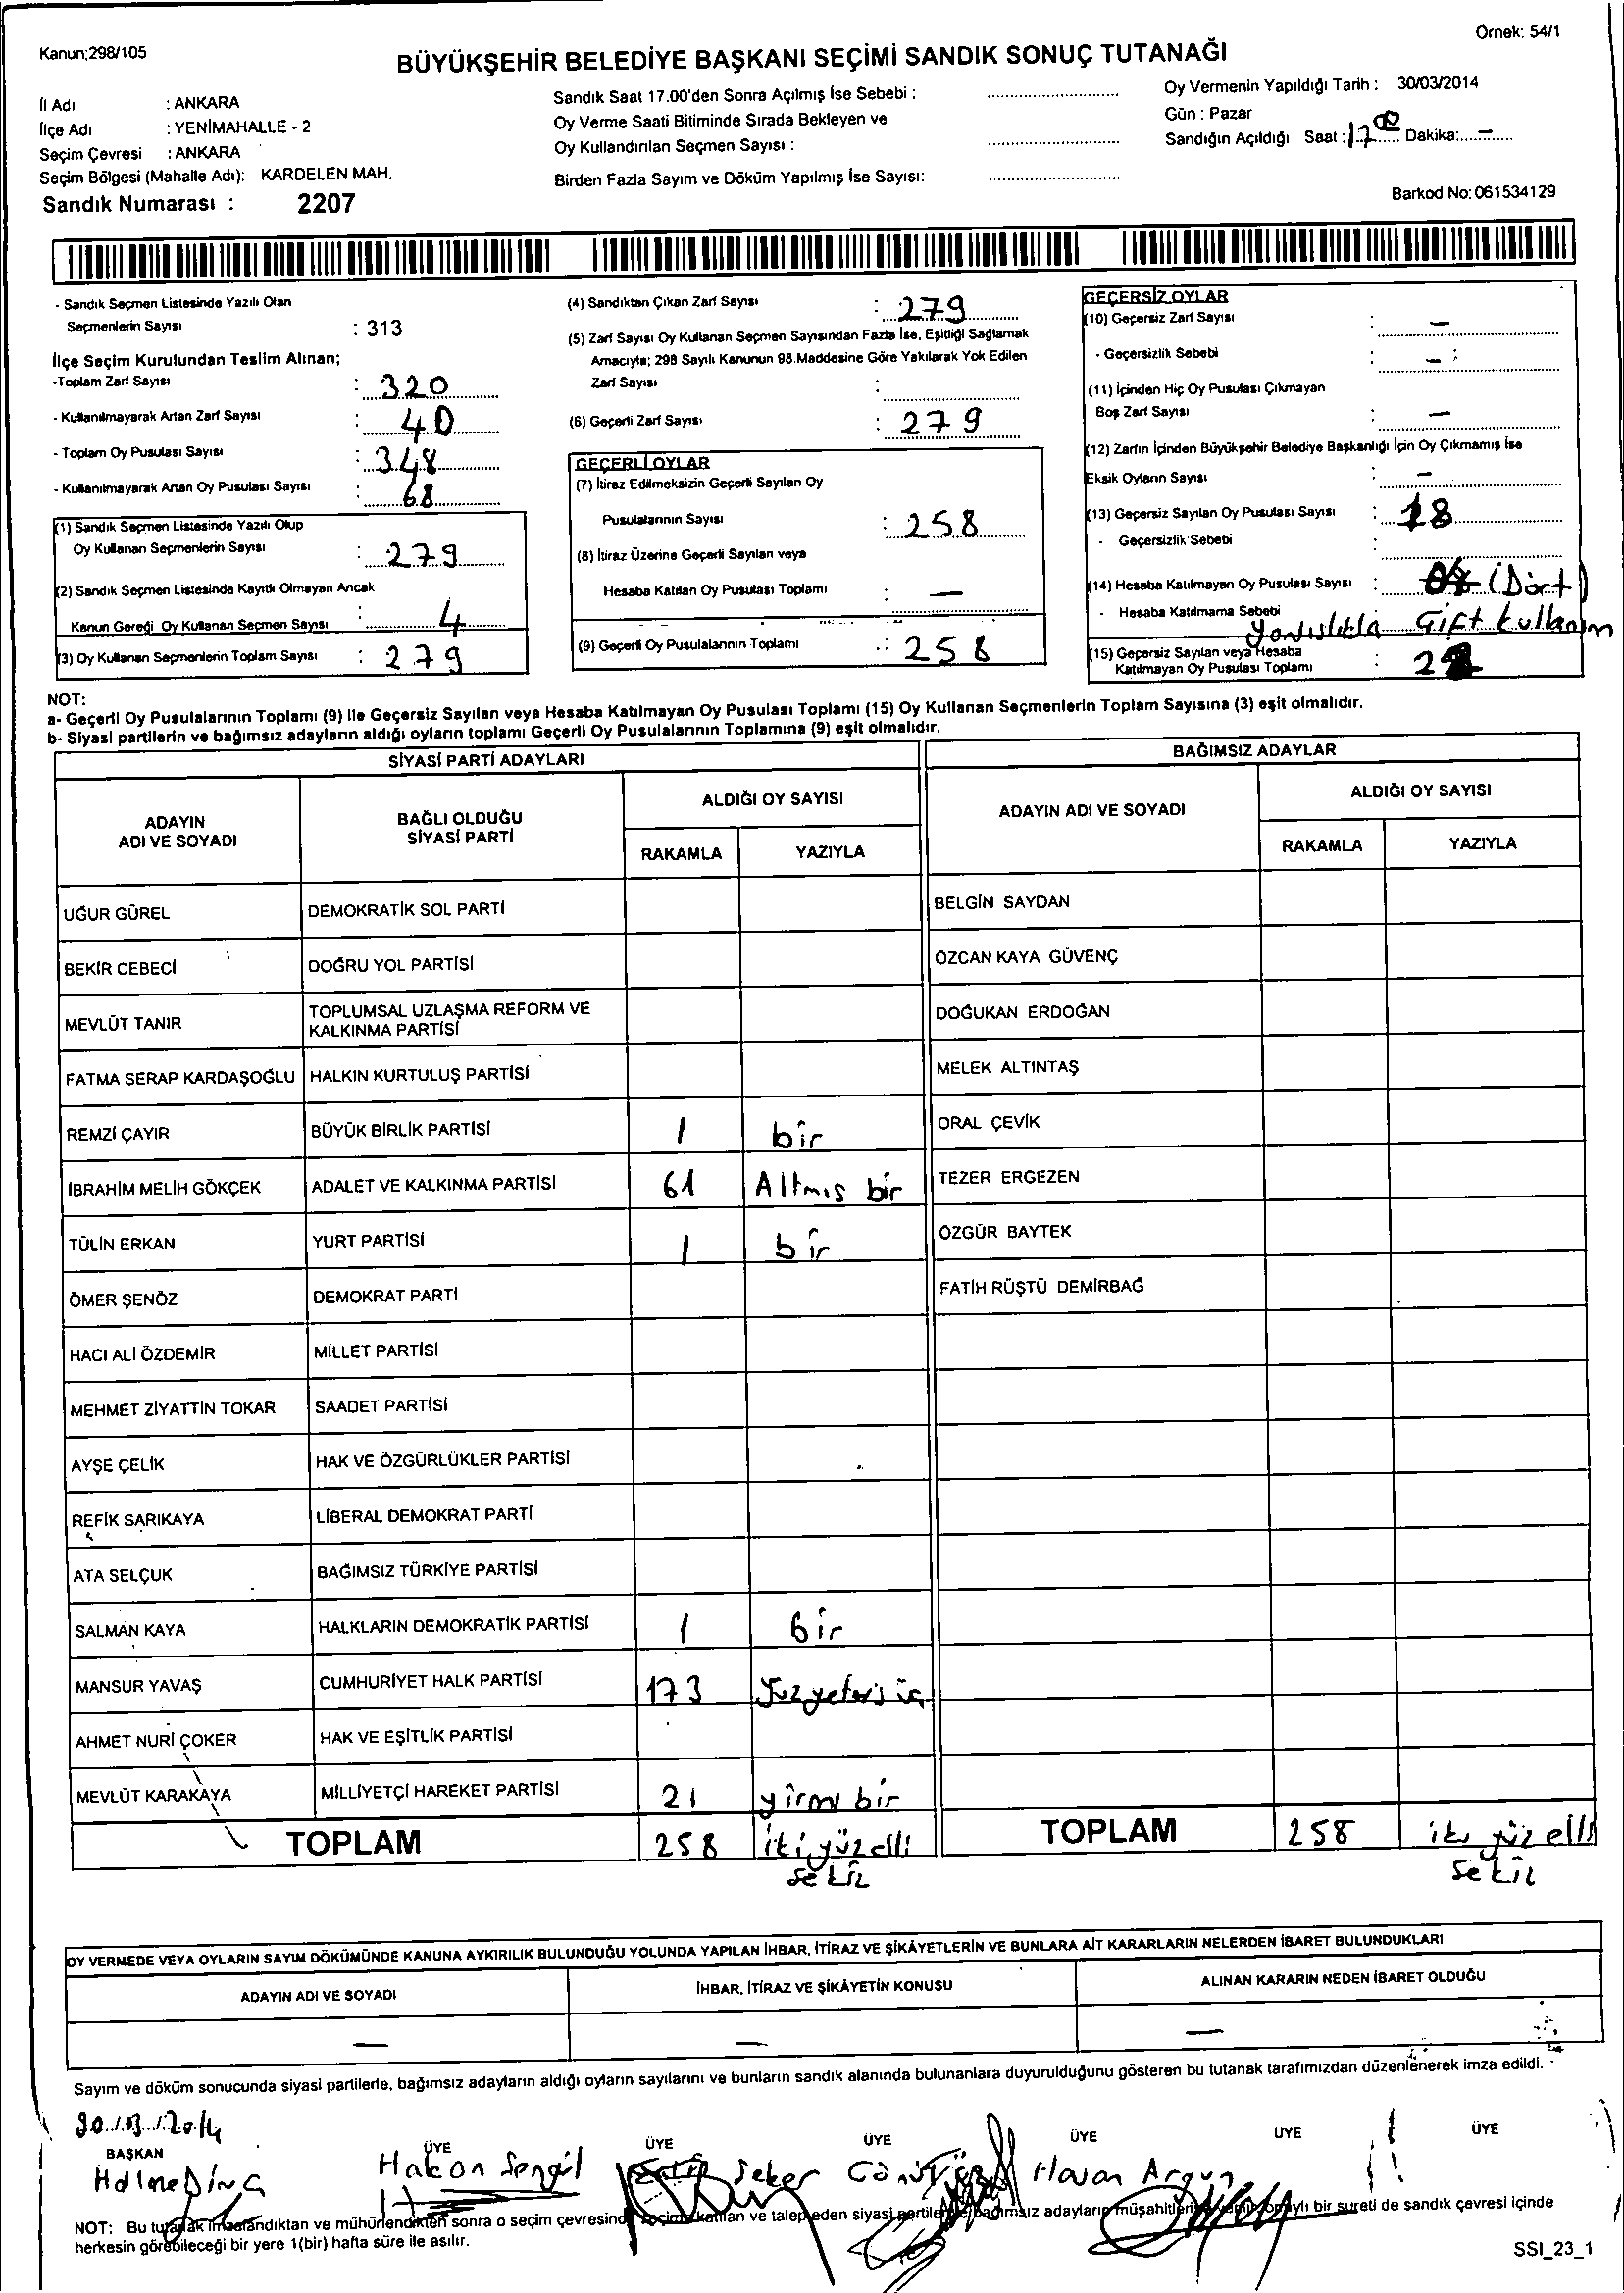 Kanun;298/105
Örnek: 54/1
BÜYÜKŞEHİR BELEDİYE BAŞKANI SEÇİMİ SANDIK SONUÇ TUTANAĞI
İl Adı : ANKARA
İlçe Adı : YENİMAHALLE - 2
Seçim Çevresi : ANKARA
Seçim Bölgesi (Mahalle Adı): KARDELEN MAH.
Sandık Numarası : 2207
Sandık Saat 17.00'den Sonra Açılmış İse Sebebi :
Oy Verme Saati Bitiminde Sırada Bekleyen ve
Oy Kullandırılan Seçmen Sayısı :
Birden Fazla Sayım ve Döküm Yapılmış İse Sayısı:
Oy Vermenin Yapıldığı Tarih : 30/03/2014
Gün : Pazar
Sandığın Açıldığı Saat : 17 00 Dakika: –
Barkod No: 061534129
- Sandık Seçmen Listesinde Yazılı Olan
Seçmenlerin Sayısı : 313
İlçe Seçim Kurulundan Teslim Alınan;
-Toplam Zarf Sayısı : 320
- Kullanılmayarak Artan Zarf Sayısı : 40
- Toplam Oy Pusulası Sayısı : 348
- Kullanılmayarak Artan Oy Pusulası Sayısı : 68
(1) Sandık Seçmen Listesinde Yazılı Olup
Oy Kullanan Seçmenlerin Sayısı : 279
(2) Sandık Seçmen Listesinde Kayıtlı Olmayan Ancak
Kanun Gereği Oy Kullanan Seçmen Sayısı : 4
(3) Oy Kullanan Seçmenlerin Toplam Sayısı : 279
(4) Sandıktan Çıkan Zarf Sayısı : 279
(5) Zarf Sayısı Oy Kullanan Seçmen Sayısından Fazla İse, Eşitliği Sağlamak
Amacıyla; 298 Sayılı Kanunun 98.Maddesine Göre Yakılarak Yok Edilen
Zarf Sayısı :
(6) Geçerli Zarf Sayısı : 279
GEÇERLİ OYLAR
(7) İtiraz Edilmeksizin Geçerli Sayılan Oy
Pusulalarının Sayısı : 258
(8) İtiraz Üzerine Geçerli Sayılan veya
Hesaba Katılan Oy Pusulası Toplamı : –
(9) Geçerli Oy Pusulalarının Toplamı : 258
GEÇERSİZ OYLAR
(10) Geçersiz Zarf Sayısı : –
- Geçersizlik Sebebi : –
(11) İçinden Hiç Oy Pusulası Çıkmayan
Boş Zarf Sayısı : –
(12) Zarfın İçinden Büyükşehir Belediye Başkanlığı İçin Oy Çıkmamış İse
Eksik Oyların Sayısı : –
(13) Geçersiz Sayılan Oy Pusulası Sayısı : 18
- Geçersizlik Sebebi :
(14) Hesaba Katılmayan Oy Pusulası Sayısı : (Dört)
- Hesaba Katılmama Sebebi : Yanlışlıkla Çift kullanım
(15) Geçersiz Sayılan veya Hesaba
Katılmayan Oy Pusulası Toplamı :
NOT:
a- Geçerli Oy Pusulalarının Toplamı (9) ile Geçersiz Sayılan veya Hesaba Katılmayan Oy Pusulası Toplamı (15) Oy Kullanan Seçmenlerin Toplam Sayısına (3) eşit olmalıdır.
b- Siyasi partilerin ve bağımsız adayların aldığı oyların toplamı Geçerli Oy Pusulalarının Toplamına (9) eşit olmalıdır.
SİYASİ PARTİ ADAYLARI
ADAYIN ADI VE SOYADI
BAĞLI OLDUĞU SİYASİ PARTİ
ALDIĞI OY SAYISI
RAKAMLA YAZIYLA
UĞUR GÜREL DEMOKRATİK SOL PARTİ
BEKİR CEBECİ DOĞRU YOL PARTİSİ
MEVLÜT TANIR TOPLUMSAL UZLAŞMA REFORM VE KALKINMA PARTİSİ
FATMA SERAP KARDAŞOĞLU HALKIN KURTULUŞ PARTİSİ
REMZİ ÇAYIR BÜYÜK BİRLİK PARTİSİ 1 bir
İBRAHİM MELİH GÖKÇEK ADALET VE KALKINMA PARTİSİ 61 Altmış bir
TÜLİN ERKAN YURT PARTİSİ 1 bir
ÖMER ŞENÖZ DEMOKRAT PARTİ
HACI ALİ ÖZDEMİR MİLLET PARTİSİ
MEHMET ZİYATTİN TOKAR SAADET PARTİSİ
AYŞE ÇELİK HAK VE ÖZGÜRLÜKLER PARTİSİ
REFİK SARIKAYA LİBERAL DEMOKRAT PARTİ
ATA SELÇUK BAĞIMSIZ TÜRKİYE PARTİSİ
SALMAN KAYA HALKLARIN DEMOKRATİK PARTİSİ 1 bir
MANSUR YAVAŞ CUMHURİYET HALK PARTİSİ 173
AHMET NURİ ÇOKER HAK VE EŞİTLİK PARTİSİ
MEVLÜT KARAKAYA MİLLİYETÇİ HAREKET PARTİSİ 21 yirmi bir
TOPLAM 258 iki yüz elli
sekiz
BAĞIMSIZ ADAYLAR
ADAYIN ADI VE SOYADI
ALDIĞI OY SAYISI
RAKAMLA YAZIYLA
BELGİN SAYDAN
ÖZCAN KAYA GÜVENÇ
DOĞUKAN ERDOĞAN
MELEK ALTINTAŞ
ORAL ÇEVİK
TEZER ERGEZEN
ÖZGÜR BAYTEK
FATİH RÜŞTÜ DEMİRBAĞ
TOPLAM 258 iki yüz elli
sekiz
OY VERMEDE VEYA OYLARIN SAYIM DÖKÜMÜNDE KANUNA AYKIRILIK BULUNDUĞU YOLUNDA YAPILAN İHBAR, İTİRAZ VE ŞİKÂYETLERİN VE BUNLARA AİT KARARLARIN NELERDEN İBARET BULUNDUKLARI
ADAYIN ADI VE SOYADI İHBAR, İTİRAZ VE ŞİKÂYETİN KONUSU ALINAN KARARIN NEDEN İBARET OLDUĞU
– – –
Sayım ve döküm sonucunda siyasi partilerle, bağımsız adayların aldığı oyların sayılarını ve bunların sandık alanında bulunanlara duyurulduğunu gösteren bu tutanak tarafımızdan düzenlenerek imza edildi.
30/03/2014
BAŞKAN ÜYE ÜYE ÜYE ÜYE ÜYE ÜYE
Hakan Şengül Şeker Hasan Argun
NOT: Bu tutanak imzalandıktan ve mühürlendikten sonra o seçim çevresinde seçime katılan ve talep eden siyasi partilerle bağımsız adayların müşahitlerine verilir. onaylı bir sureti de sandık çevresi içinde
herkesin görebileceği bir yere 1(bir) hafta süre ile asılır.
SSI_23_1